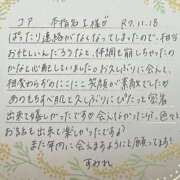 コア 本指名 I様か R7.11.18
ぱったり連絡がなくなってしまったので、相当
お忙しいんだろうなと、体調も崩しちゃったのか
なと心配していました。お久しぶりに会えて
相変わらずのにこにこ笑顔が素敵でした
あのもちすべ肌と久しぶりにぴたっと密着
出来て嬉しかったですが、会えなかった分、色々と
お話も出来て楽しかったですよ♡
また年内に会えますようにと願ってます!
すみれ